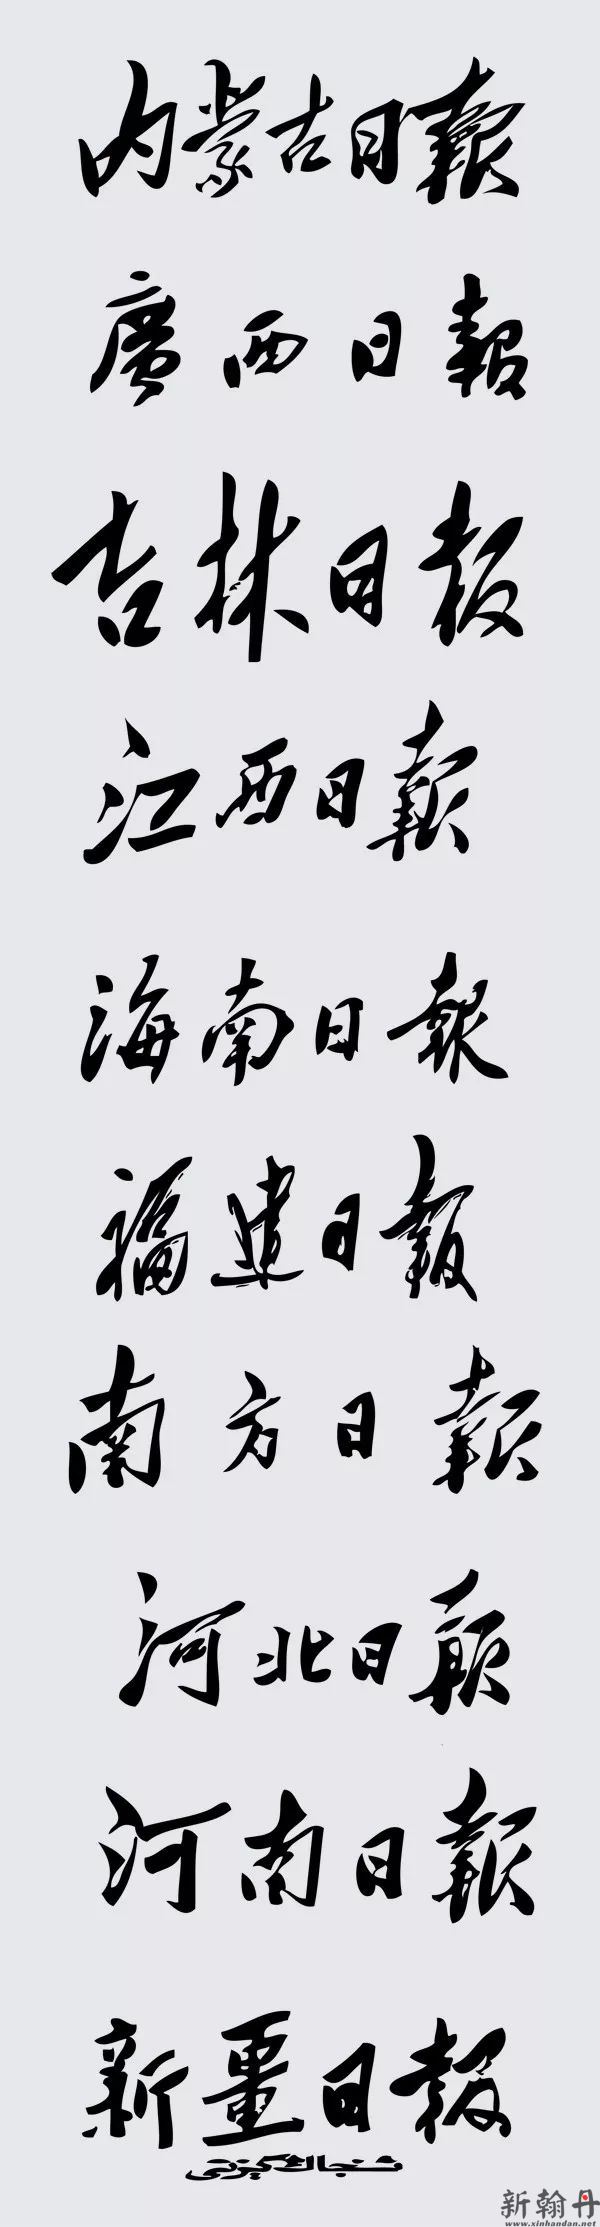 内蒙古日報
廣西日報
吉林日报
江西日報
海南日報
福建日報
南方日報
河北日報
河南日報
新疆日报
شىنجاڭ گېزىتى
新翰丹
www.xinhandan.net